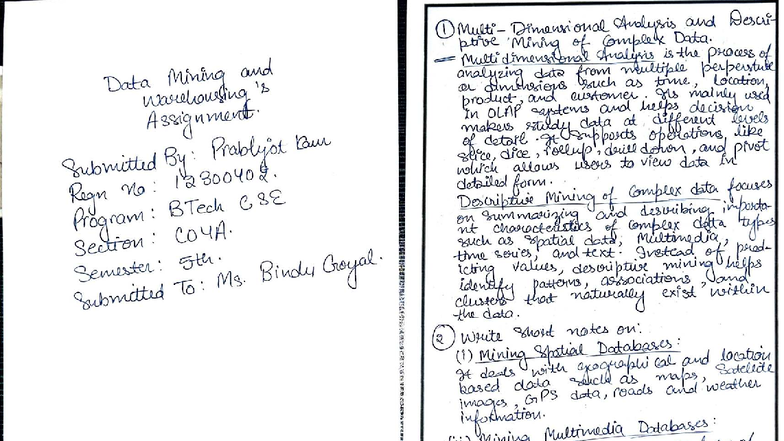 Data Mining and
Warehousing's
Assignment.
Submitted By: Prabhjot Kaur
Regn No: 12300402.
Program: BTech CSE
Section: CO4A.
Semester: 5th.
Submitted To: Ms. Bindu Goyal.
① Multi-Dimensional Analysis and Descri-
ptive Mining of Complex Data.
Multidimensional Analysis is the process of
analyzing data from multiple perpersture
or dimensions such as time, location,
product, and customer. Its mainly used
in OLAP systems and helps decision
makers study data at different levels
of detail. It supports operations, like
slice, dice, rollup, drill down, and pivot
which allows users to view data in
detailed form.
Descriptive Mining of Complex data focuses
on summarizing and describing importa-
nt characteristics of complex data types
such as spatial data, Multimedia,
time series, and text. Instead of pred-
icting values, descriptive mining helps
identify patterns, associations, and
clusters that naturally exist within
the data.
② Write short notes on:
(i) Mining Spatial Databases:
It deals with geographical and location
based data such as maps, Satellite
images, GPS data, roads and weather
information.
(ii) Mining Multimedia Databases: